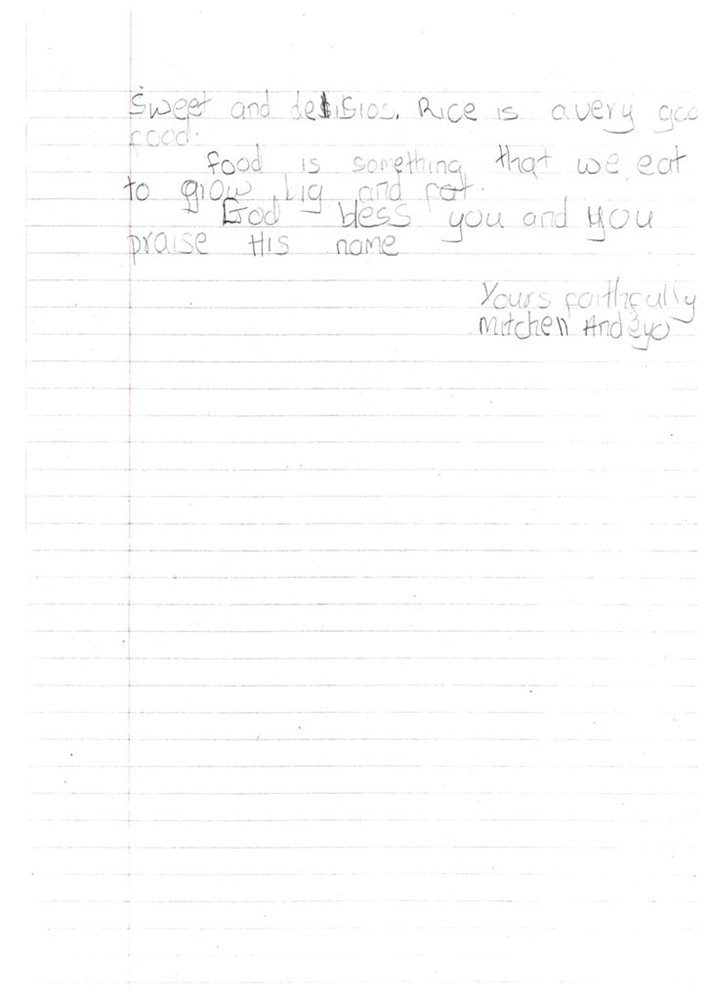 Sweet and delisios. Rice is a very goo
food.
food is something that we eat
to grow big and fat.
God bless you and you
praise His name
Yours faithfully
Mitchell Andeyo